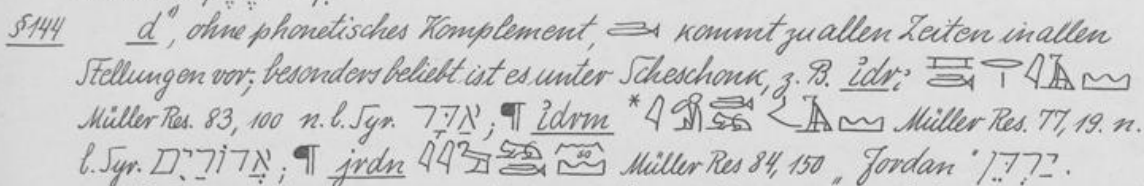 §144 d", ohne phonetisches Komplement, kommt zu allen Zeiten in allen
Stellungen vor; besonders beliebt ist es unter Scheschonk, z. B. ỉdr:
Müller Res. 83, 100 n. l. Syr. אַדָּר; ¶ ỉdrm * Müller Res. 77, 19. n.
l. Syr. אֲדוֹרַיִם; ¶ jrdn Müller Res 84, 150 „Jordan" יַרְדֵּן.